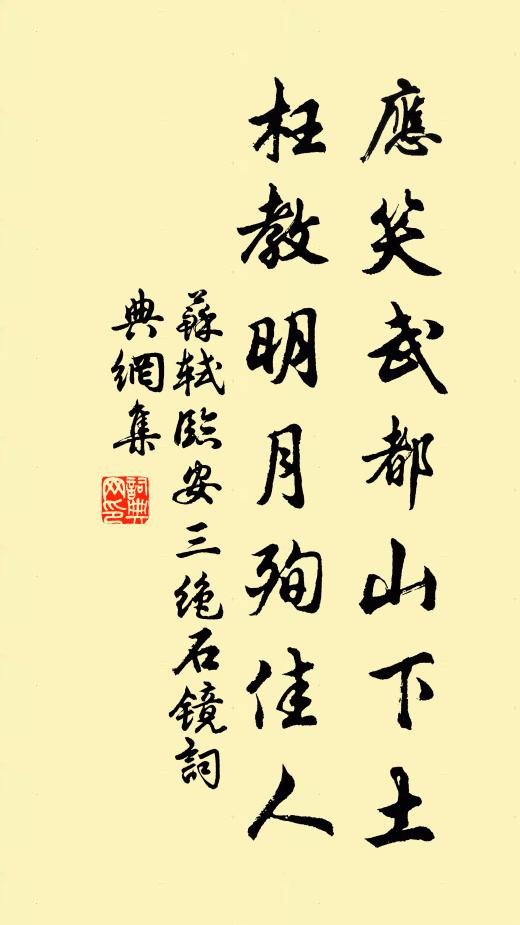 應笑武都山下土
枉教明月殉佳人
蘇軾臨安三絕石鏡詞
典網集
詞典網印